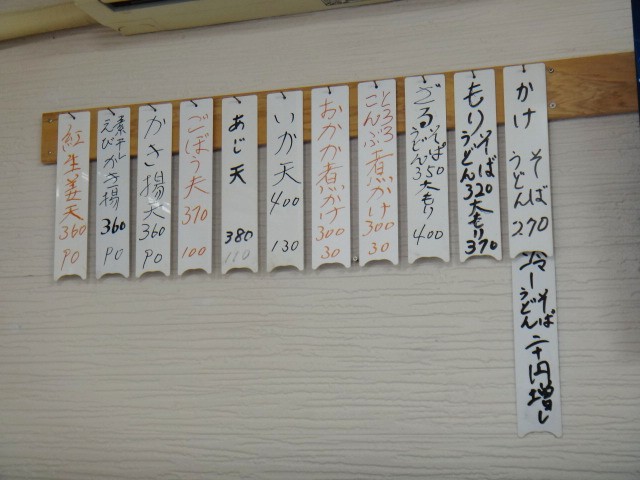 かけ そば うどん 270
冷し そば うどん 二十円増し
もりそば うどん 320 大もり 370
ざる そば うどん 350 大もり 400
とろろ こんぶ煮かけ 300 30
おかか煮かけ 300 30
いか天 400 130
あじ天 380 110
ごぼう天 370 100
かき揚天 360 90
素干し えびかき揚 360 90
紅生姜天 360 90